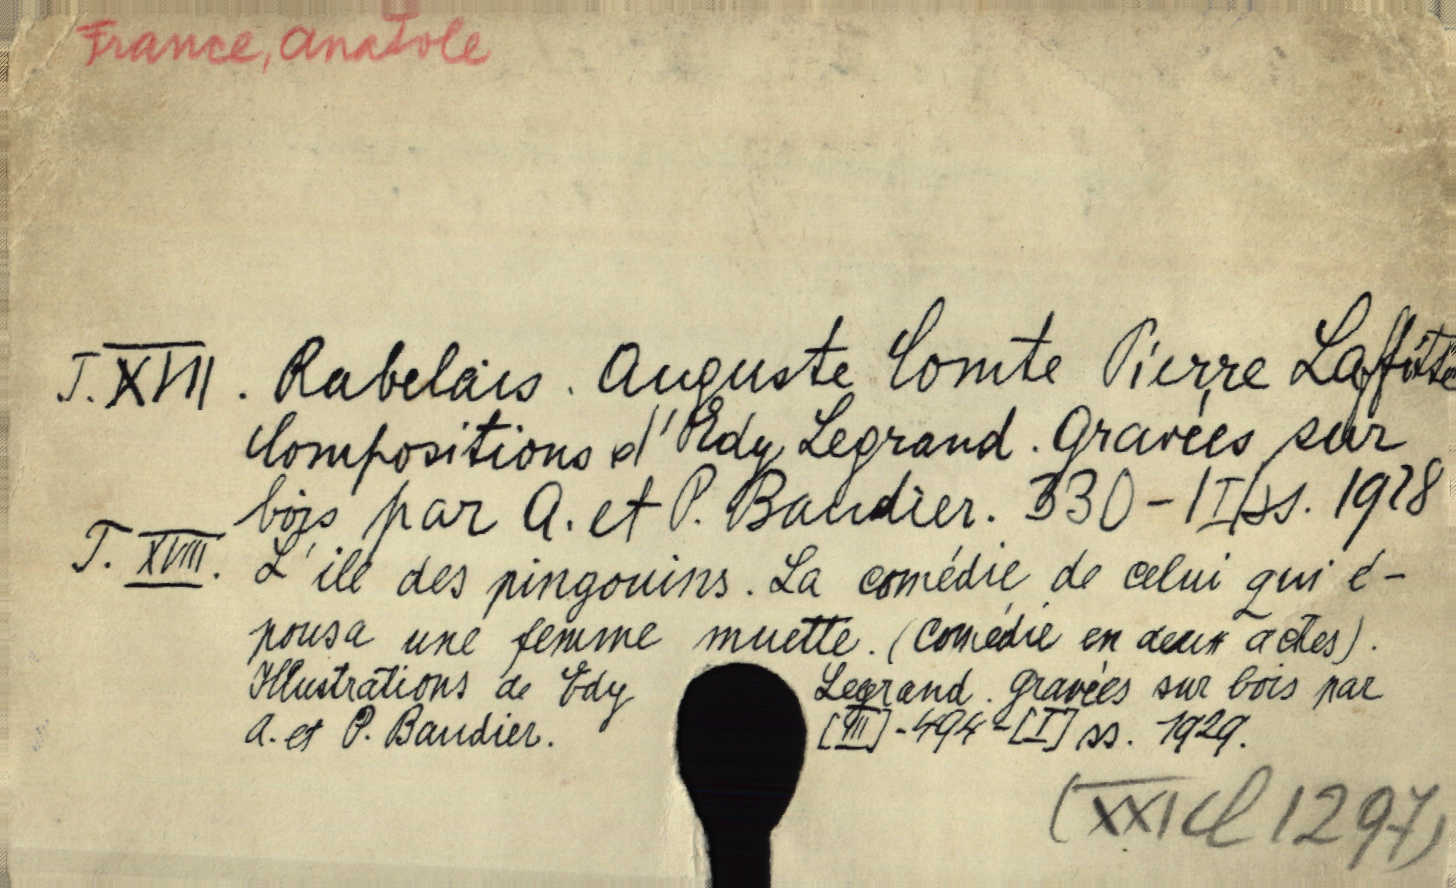 France, Anatole
T. XVII. Rabelais. Auguste Comte Pierre Laffitte
Compositions d'Edy Legrand. Gravées sur
bois par A. et P. Baudier. 330-|I| ss. 1928
T. XVIII. L'île des pingouins. La comédie de celui qui é-
pousa une femme muette. (Comédie en deux actes).
Illustrations de Edy Legrand. gravées sur bois par
A. et P. Baudier. [VII]-494-[I] ss. 1929.
(XXI 1297)